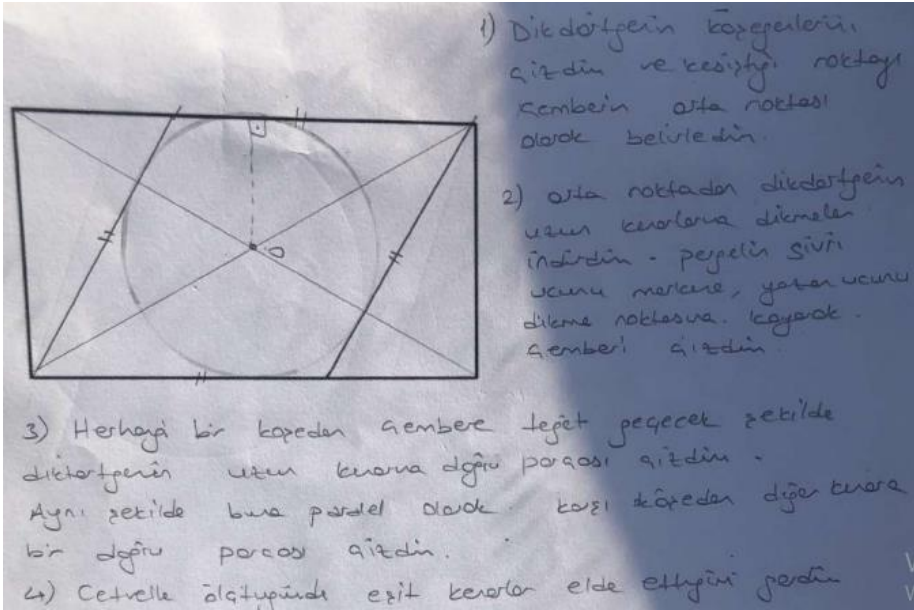 1) Dikdörtgenin köşegenlerini
çizdim ve kesiştiği noktayı
çemberin orta noktası
olarak belirledim.
2) orta noktadan dikdörtgenin
uzun kenarlarına dikmeler
indirdim. pergelin sivri
ucunu merkeze, yazan ucunu
dikme noktasına koyarak.
çemberi çizdim.
O
3) Herhangi bir köşeden çembere teğet geçecek şekilde
diktörtgenin uzun kenarına doğru parçası çizdim.
Aynı şekilde buna paralel olarak karşı köşeden diğer kenara
bir doğru parçası çizdim.
4) Cetvelle ölçtüğümde eşit kenarlar elde ettiğimi gördüm